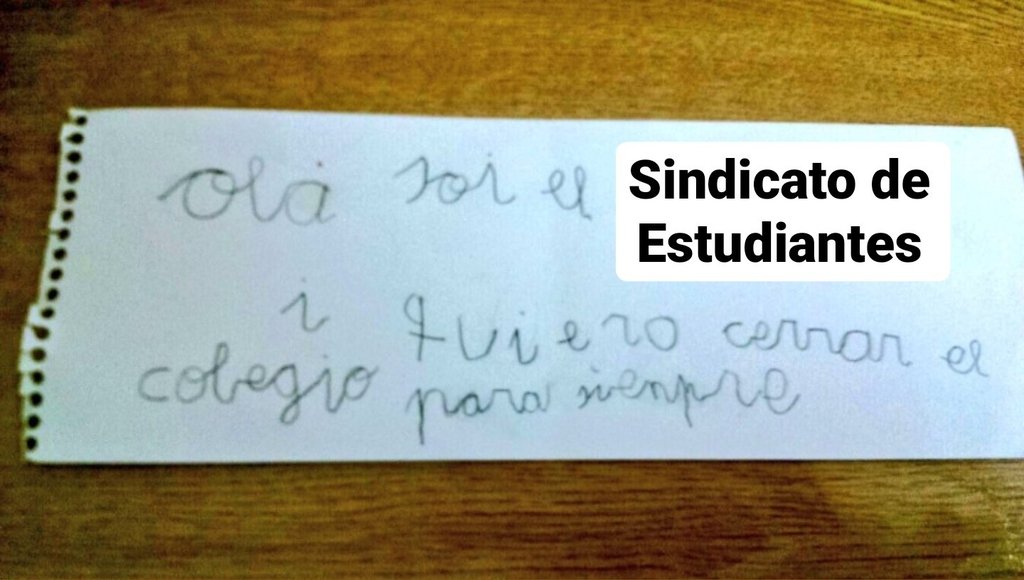 olá soi el Sindicato de
Estudiantes
i quiero cerrar el
colegio para sienpre